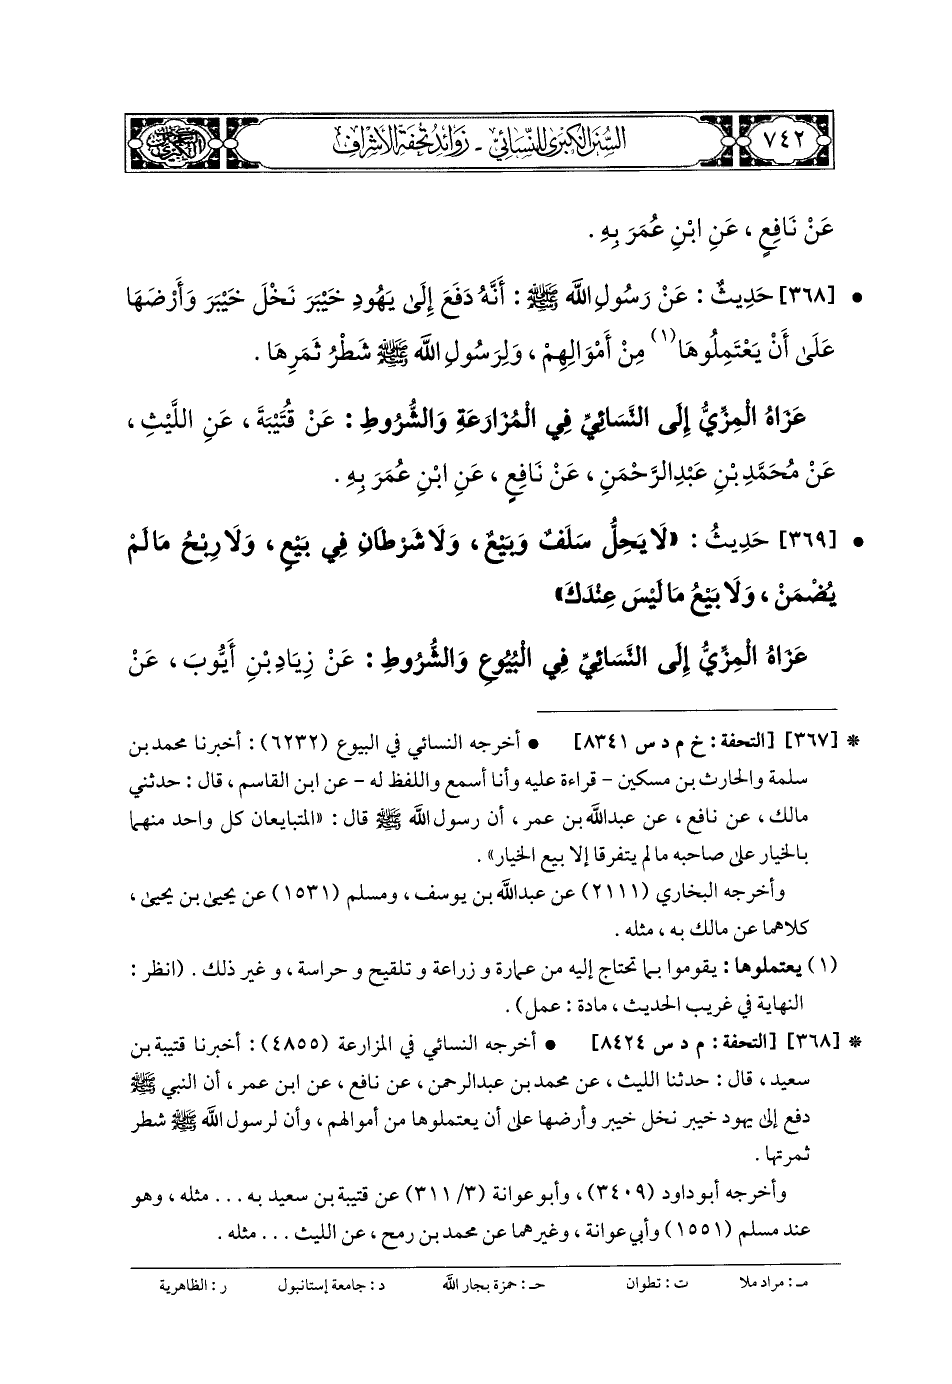 ٧٤٢
السنن الكبرى للنسائي - زوائد تحفة الأشراف
عَنْ نَافِعٍ ، عَنِ ابْنِ عُمَرَ بِهِ .
• [٣٦٨] حَدِيثٌ : عَنْ رَسُولِ اللَّه ﷺ : أَنَّهُ دَفَعَ إِلَىٰ يَهُودِ خَيْبَرَ نَخْلَ خَيْبَرَ وَأَرْضَهَا
عَلَىٰ أَنْ يَعْتَمِلُوهَا(١) مِنْ أَمْوَالِهِمْ ، وَلِرَسُولِ اللَّه ﷺ شَطْرُ ثَمَرِهَا .
عَزَاهُ الْمِزِّيُّ إِلَى النَّسَائِيِّ فِي الْمُزَارَعَةِ وَالشُّرُوطِ : عَنْ قُتَيْبَةَ ، عَنِ اللَّيْثِ ،
عَنْ مُحَمَّدِ بْنِ عَبْدِ الرَّحْمَنِ ، عَنْ نَافِعٍ ، عَنِ ابْنِ عُمَرَ بِهِ .
• [٣٦٩] حَدِيثُ : «لَا يَحِلُّ سَلَفٌ وَبَيْعٌ ، وَلَا شَرْطَانِ فِي بَيْعٍ ، وَلَا رِبْحُ مَا لَمْ
يُضْمَنْ ، وَلَا بَيْعُ مَا لَيْسَ عِنْدَكَ»
عَزَاهُ الْمِزِّيُّ إِلَى النَّسَائِيِّ فِي الْبُيُوعِ وَالشُّرُوطِ : عَنْ زِيَادِ بْنِ أَيُّوبَ ، عَنْ
* [٣٦٧] [التحفة : خ م د س ٨٣٤١] • أخرجه النسائي في البيوع (٦٢٣٢) : أخبرنا محمد بن
سلمة والحارث بن مسكين - قراءة عليه وأنا أسمع واللفظ له - عن ابن القاسم ، قال : حدثني
مالك ، عن نافع ، عن عبدالله بن عمر ، أن رسول اللَّه ﷺ قال : «المتبايعان كل واحد منهما
بالخيار على صاحبه ما لم يتفرقا إلا بيع الخيار» .
وأخرجه البخاري (٢١١١) عن عبدالله بن يوسف ، ومسلم (١٥٣١) عن يحيى بن يحيى ،
كلاهما عن مالك به ، مثله .
(١) يعتملوها : يقوموا بما تحتاج إليه من عمارة و زراعة و تلقيح و حراسة ، و غير ذلك . (انظر :
النهاية في غريب الحديث ، مادة : عمل) .
* [٣٦٨] [التحفة : م د س ٨٤٢٤] • أخرجه النسائي في المزارعة (٤٨٥٥) : أخبرنا قتيبة بن
سعيد ، قال : حدثنا الليث ، عن محمد بن عبدالرحمن ، عن نافع ، عن ابن عمر ، أن النبي ﷺ
دفع إلى يهود خيبر نخل خيبر وأرضها على أن يعتملوها من أموالهم ، وأن لرسول اللَّه ﷺ شطر
ثمرتها .
وأخرجه أبو داود (٣٤٠٩) ، وأبو عوانة (٣/ ٣١١) عن قتيبة بن سعيد به ... مثله ، وهو
عند مسلم (١٥٥١) وأبي عوانة ، وغيرهما عن محمد بن رمح ، عن الليث ... مثله .
مـ : مراد ملا ت : تطوان حـ : حمزة بجار الله د : جامعة إستانبول ر : الظاهرية